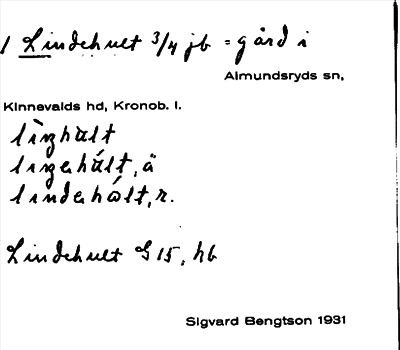 1 Lindehult 3/4 jb = gård i
Almundsryds sn,
Kinnevalds hd, Kronob. l.
lìŋhùlt
liŋehúlt, ä
lindehòlt, r.
Lindehult G 15, hb
Sigvard Bengtson 1931